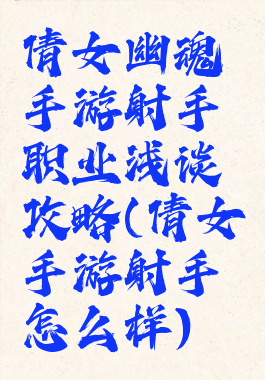 倩女幽魂
手游射手
职业浅谈
攻略(倩女
手游射手
怎么样)